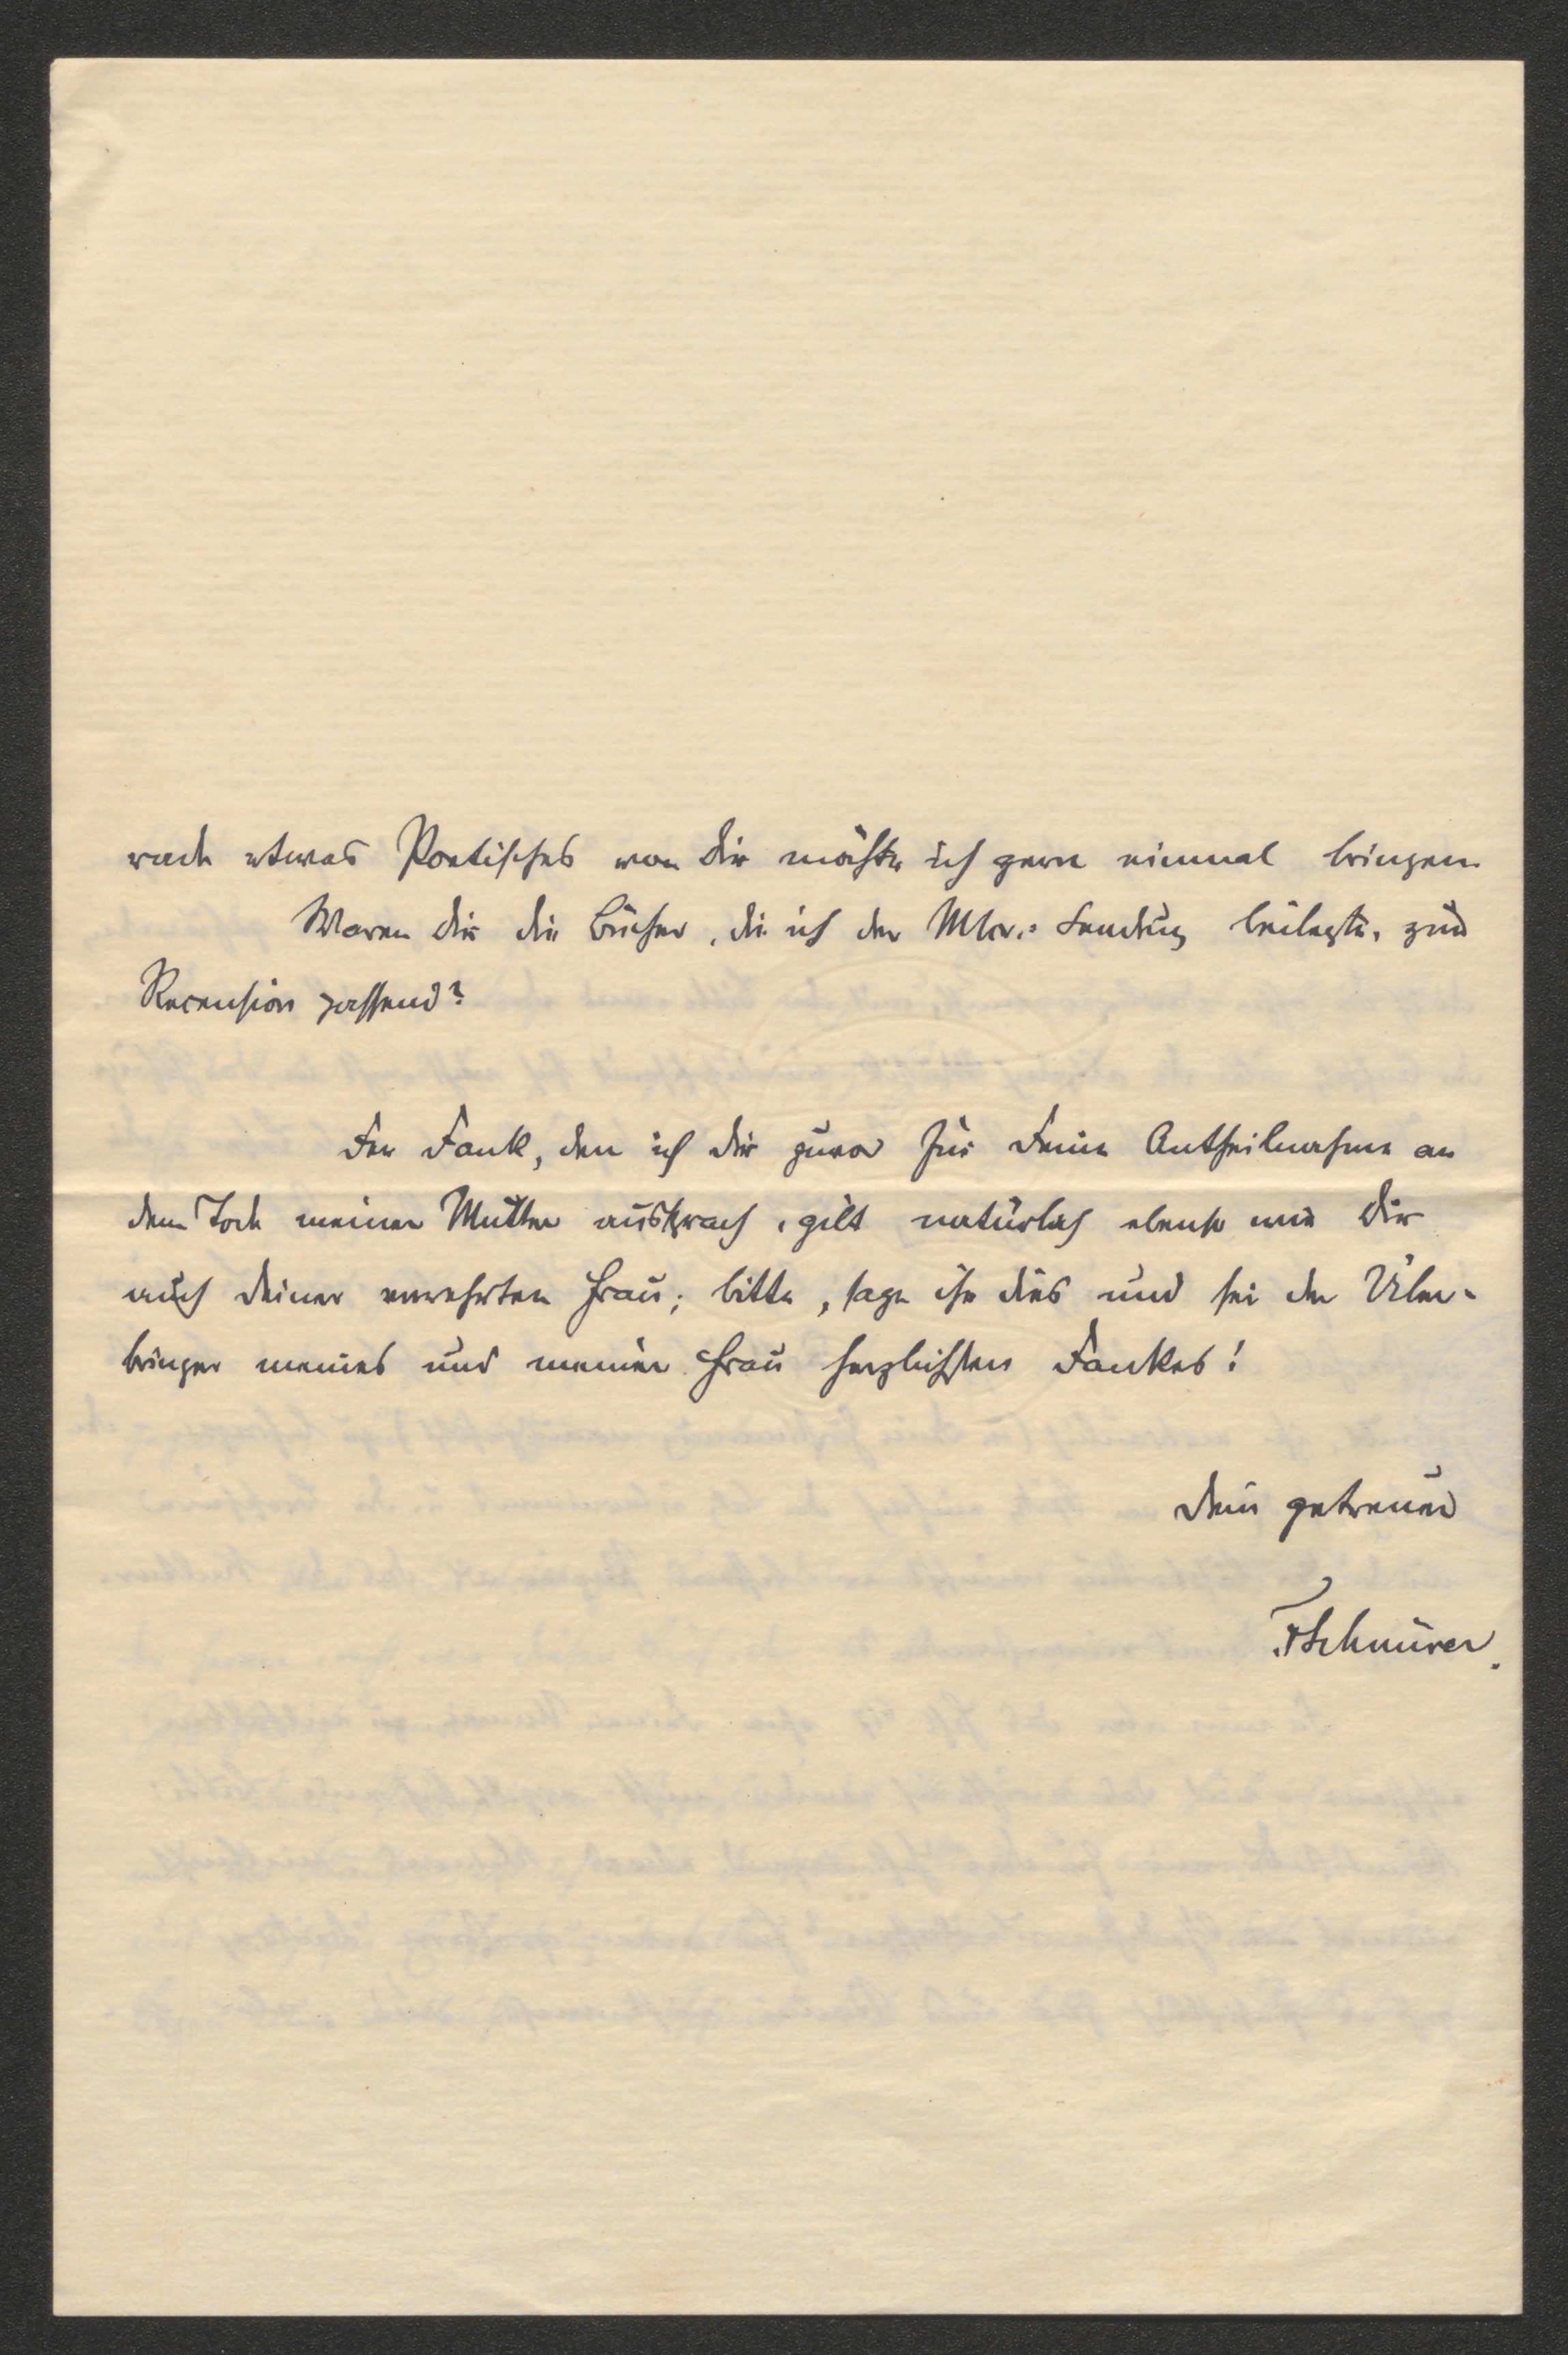 etwas Poetisches von Dir möchte ich gern einmal bringen.
Waren Dir die Bücher, die ich der Mkr.-Sendung beilegte, zur
Recension passend?
Der Dank, den ich Dir zuvor für Deine Antheilnahme an
dem Tode meiner Mutter aussprach, gilt natürlich ebenso wie Dir
auch Deiner verehrten Frau; bitte, sage ihr dies und sei der Über-
bringer meines und meiner Frau herzlichsten Dankes!
Dein getreuer
FSchnürer.